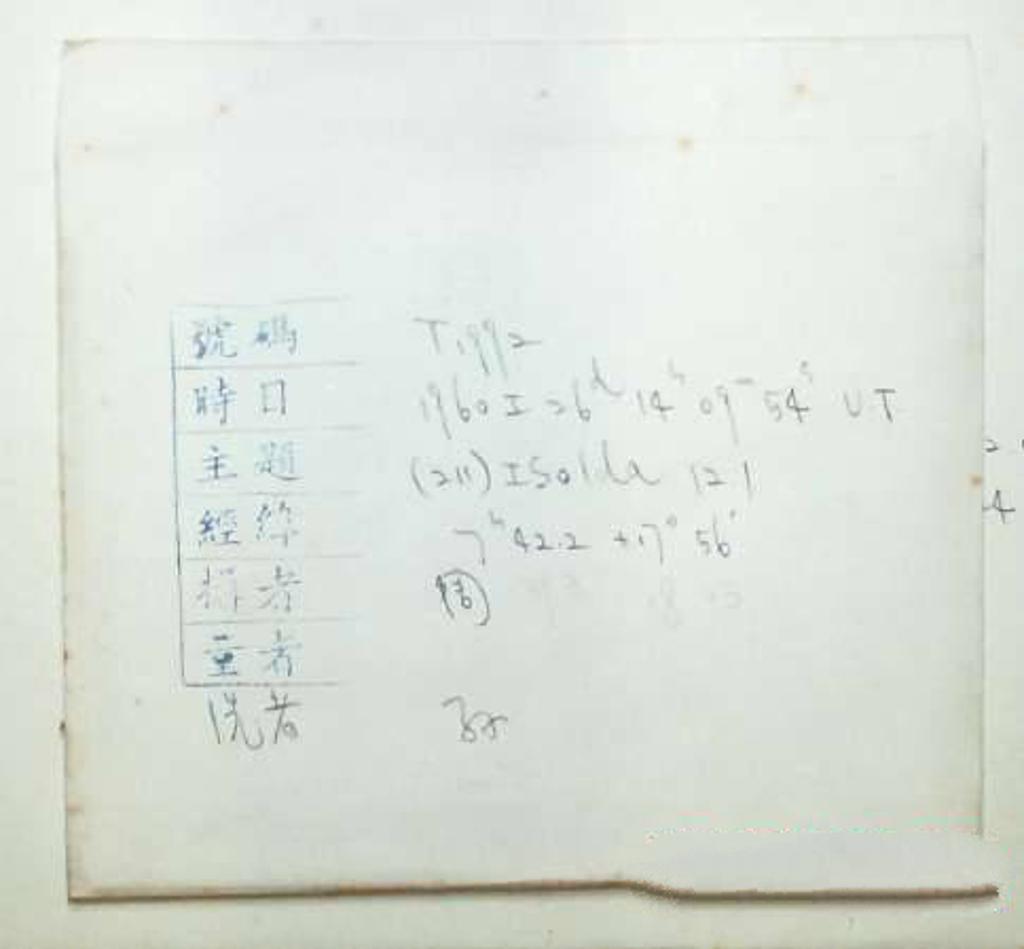 號碼 T.992
時日 1960 I 26d 14h 09m 54s U.T
主題 (211) ISolda 12.1
經緯 7h 42.2 +17° 56'
攝者
量者
洗者 孙